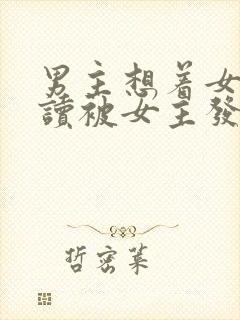 男主想着女
讀被女主發
哲密葉